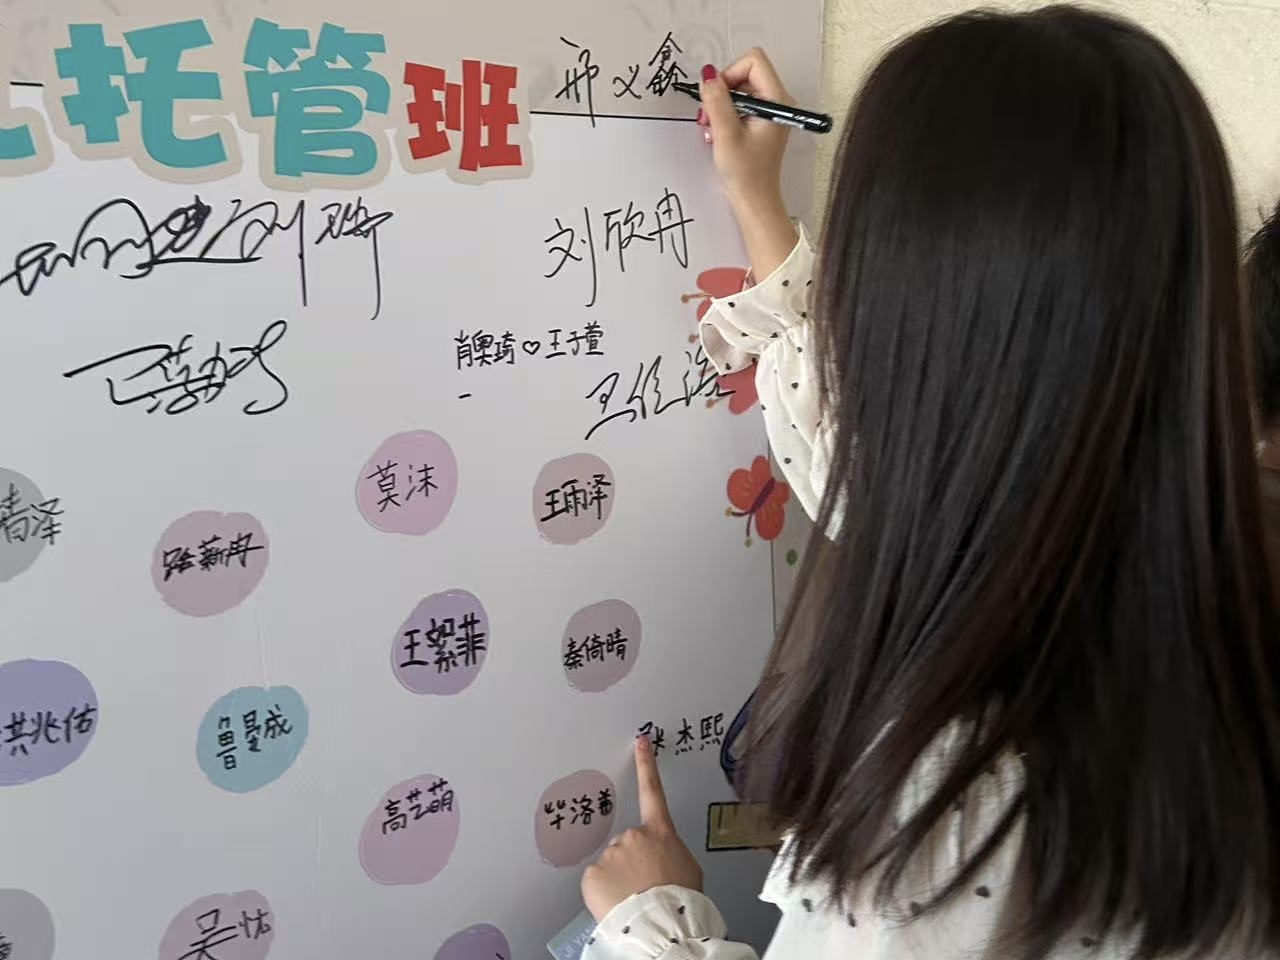 托管班
邢义鑫
刘欣冉
肖奥琦♡王子萱
莫沫
王雨泽
路薪冉
王絮菲
秦倚晴
洪兆佑
鲁曼成
张杰熙
高艺萌
毕洛希
吴怙
JI YAN